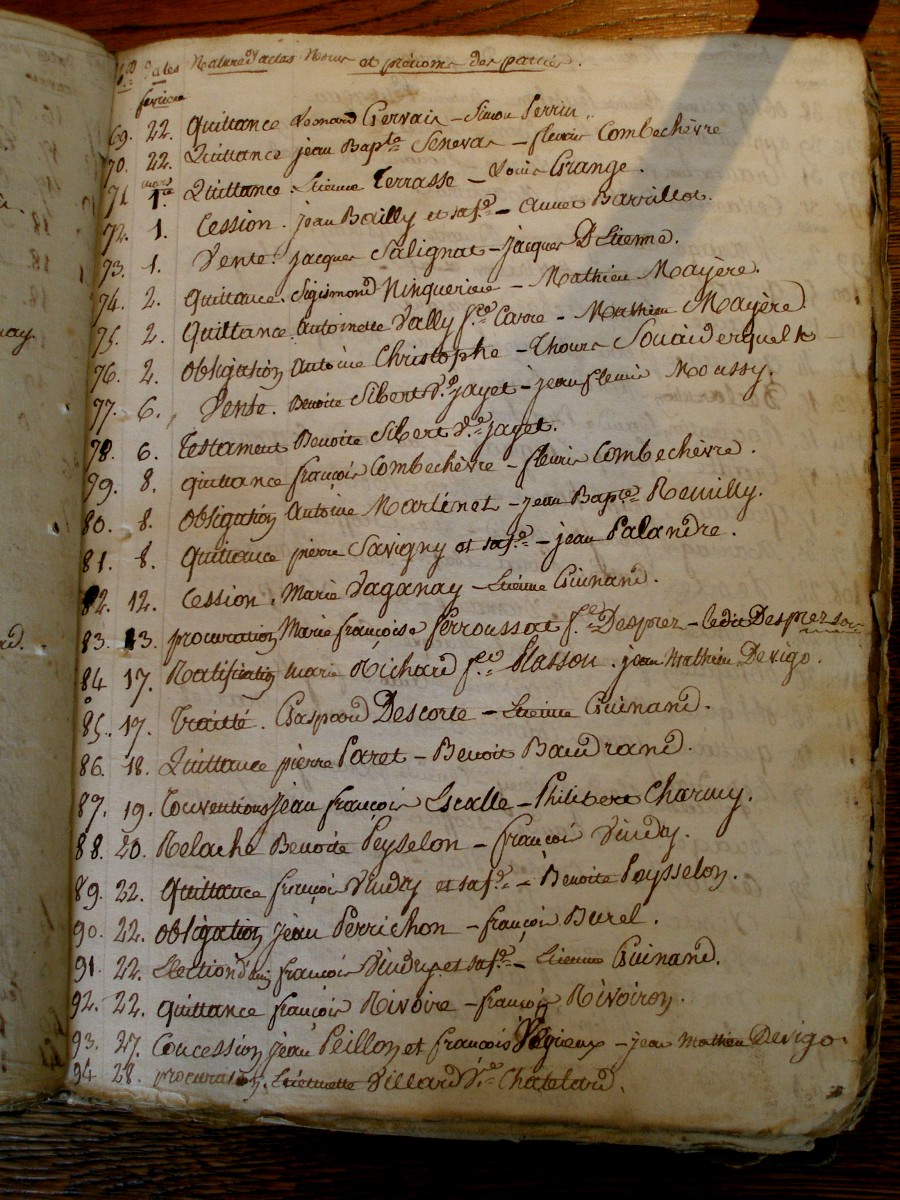 N.os Dates Nature d'actes Noms et prénoms des parties.
février
69. 22. Quittance Leonard Gervais – Simon Perrin.
70. 22. Quittance jean Bapte Seneva – fleurie Combechèvre
mars
71 1er. Quittance. Etienne Terrasse – Louis Grange.
72. 1. Cession. jean Bailly et sa fe – annet Barrillot.
73. 1. Vente. jacques Salignat – jacques D Etienne.
74. 2. quittance. Sigismond – Mathieu Mayère.
75. 2. Quittance. Antoinette Vally fe Carre – Mathieu Mayère
76. 2. obligation Antoine Christophe – Thomas
77. 6. Vente. Benoite Sibert Ve jayet – jean fleurie Moussy.
78. 6. Testament Benoite Sibert Ve jayet.
79. 8. quittance françois Combechèvre – fleurie Combechèvre.
80. 8. obligation Antoine Martinet – jean Bapte Remilly.
81. 8. quittance pierre Savigny et sa fe – jean Palandre.
82. 12. Cession. Marie Daganay – Etienne Guinand.
83. 13. procuration Marie françoise Perroussat fe Desprez – ledit Desprez son
84 17. Ratification marie Richard fe Plasson. jean Mathieu Devigo.
85. 17. Traitté. Gaspard Descorte – Etienne Guinand.
86. 18. Quittance pierre Paret – Benoit Baudrand.
87. 19. Conventions Jean françois Escalle – Philibert Charmy.
88. 20. Relache Benoite Peyselon – françois Vindry.
89. 22. quittance françois Vindry et sa fe – Benoite Poysselon.
90. 22. obligation jean Perrichon – françois Burel.
91. 22. Election d'ami françois Vindry et sa fe – Etienne Guinand.
92. 22. quittance françois Rivoire – françois Rivoiron.
93. 27. Concession jean Peillon et françois – jean Mathieu Devigo.
94 28. procuration. Etiennette Villard Ve Chatelard.